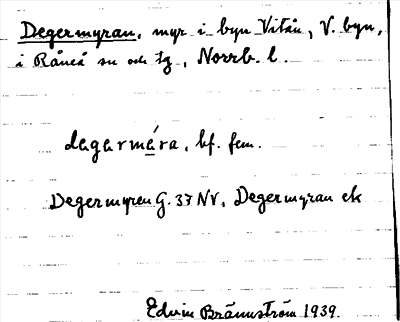 Degermyran, myr i byn Vitån, V. byn,
i Råneå sn och tg, Norrb. l.
degerméra, bf. fem.
Degermyren G. 37 NV, Degermyran ek
Edvin Brännström 1939.